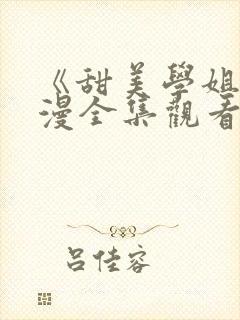 《甜美學姐
漫全集觀看
呂佳容